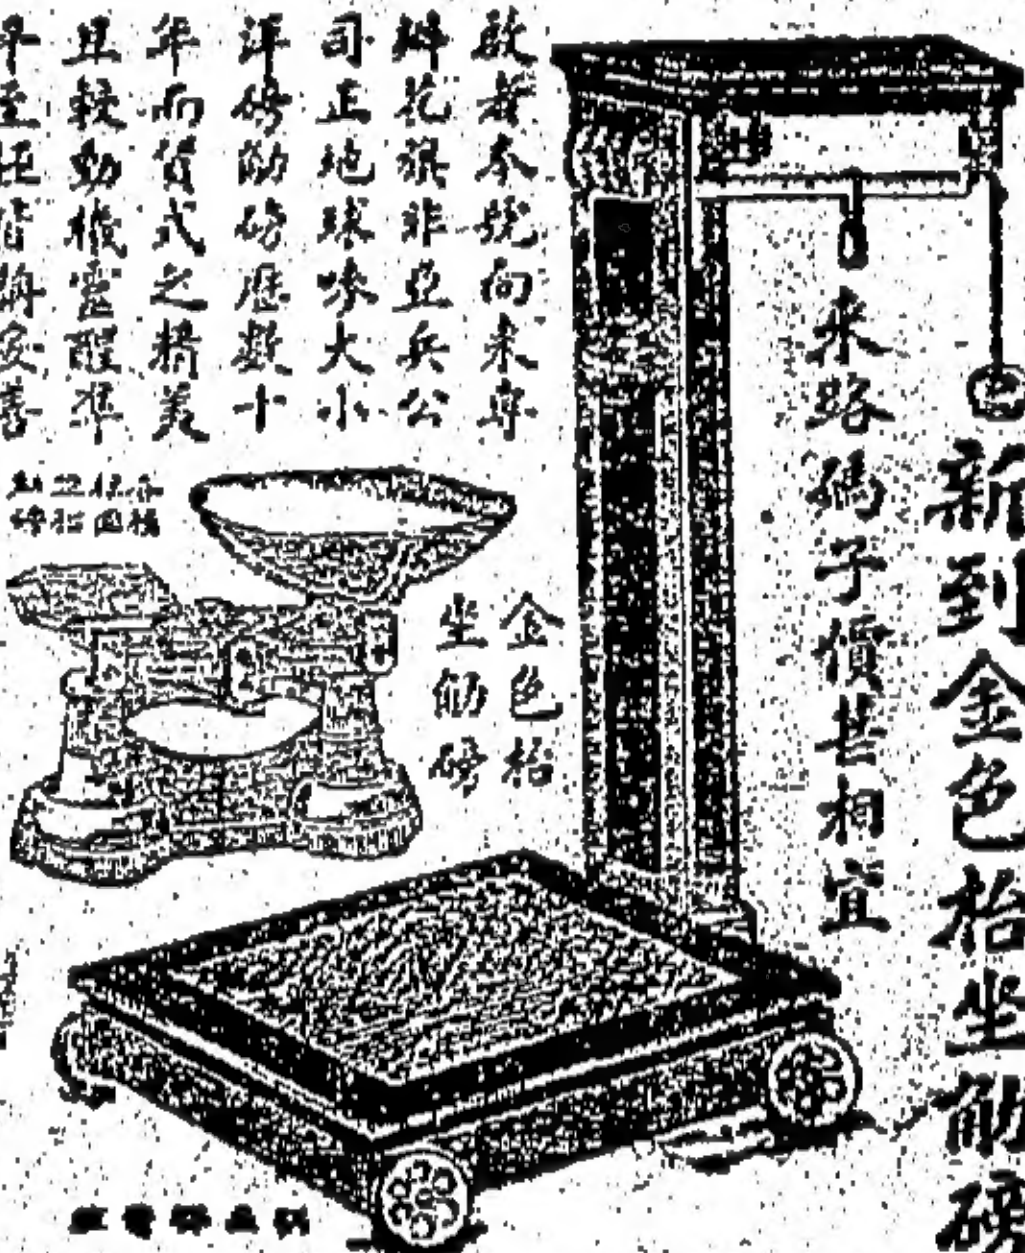 新到金色枱坐觔磅
來路碼子價甚相宜
啟者本號向來專
辦花旗非亞兵公
司正地球嘜大小
洋磅觔磅歷數十
年而貨式之精美
且較動機靈醒準
金色枱
坐觔磅